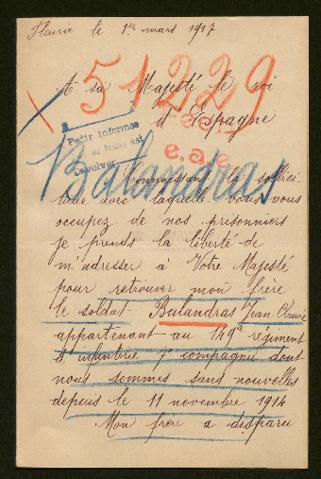 Fleurie le 1er mars 1917
51229
A sa Majesté le roi
d'Espagne
Pedir informes
Devolver
e.a.e.
Balandras
Connaissant la sollici
tude avec laquelle vous vous
occupez de nos prisonniers
je prends la liberté de
m'adresser à Votre Majesté
pour retrouver mon frère
le soldat Balandras Jean
appartenant au 149e régiment
d'infanterie 7e compagnie dont
nous sommes sans nouvelles
depuis le 11 novembre 1914
Mon frère a disparu